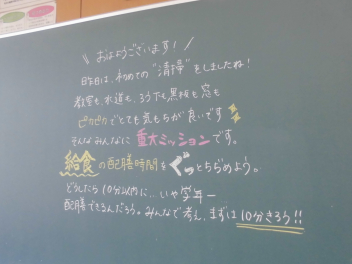 \\ おはようございます! /
昨日は、初めての"清掃"をしましたね!
教室も、水道も、ろう下も黒板も窓も
ピカピカでとても気もちが良いです
そんなみんなに重大ミッションです。
給食の配膳時間をぐっとちぢめよう。
どうしたら10分以内に…いや学年一
配膳できるんだろう。みんなで考え、まずは10分きろう!!